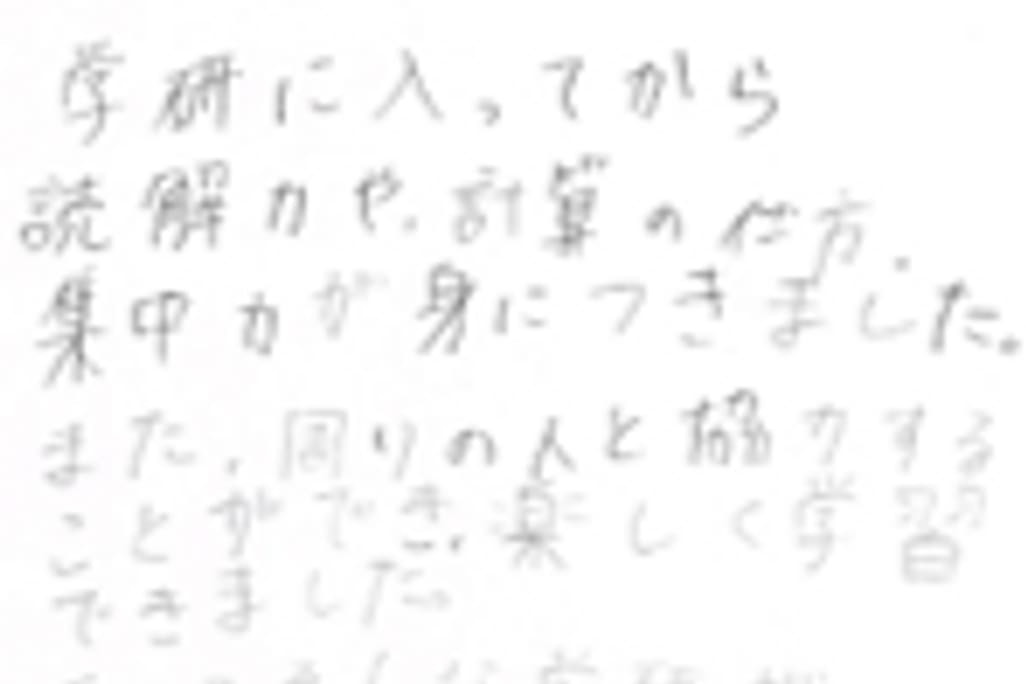 学研に入ってから
読解力や、計算の仕方、
集中力が身につきました。
また、周りの人と協力する
ことができ、楽しく学習
できました。